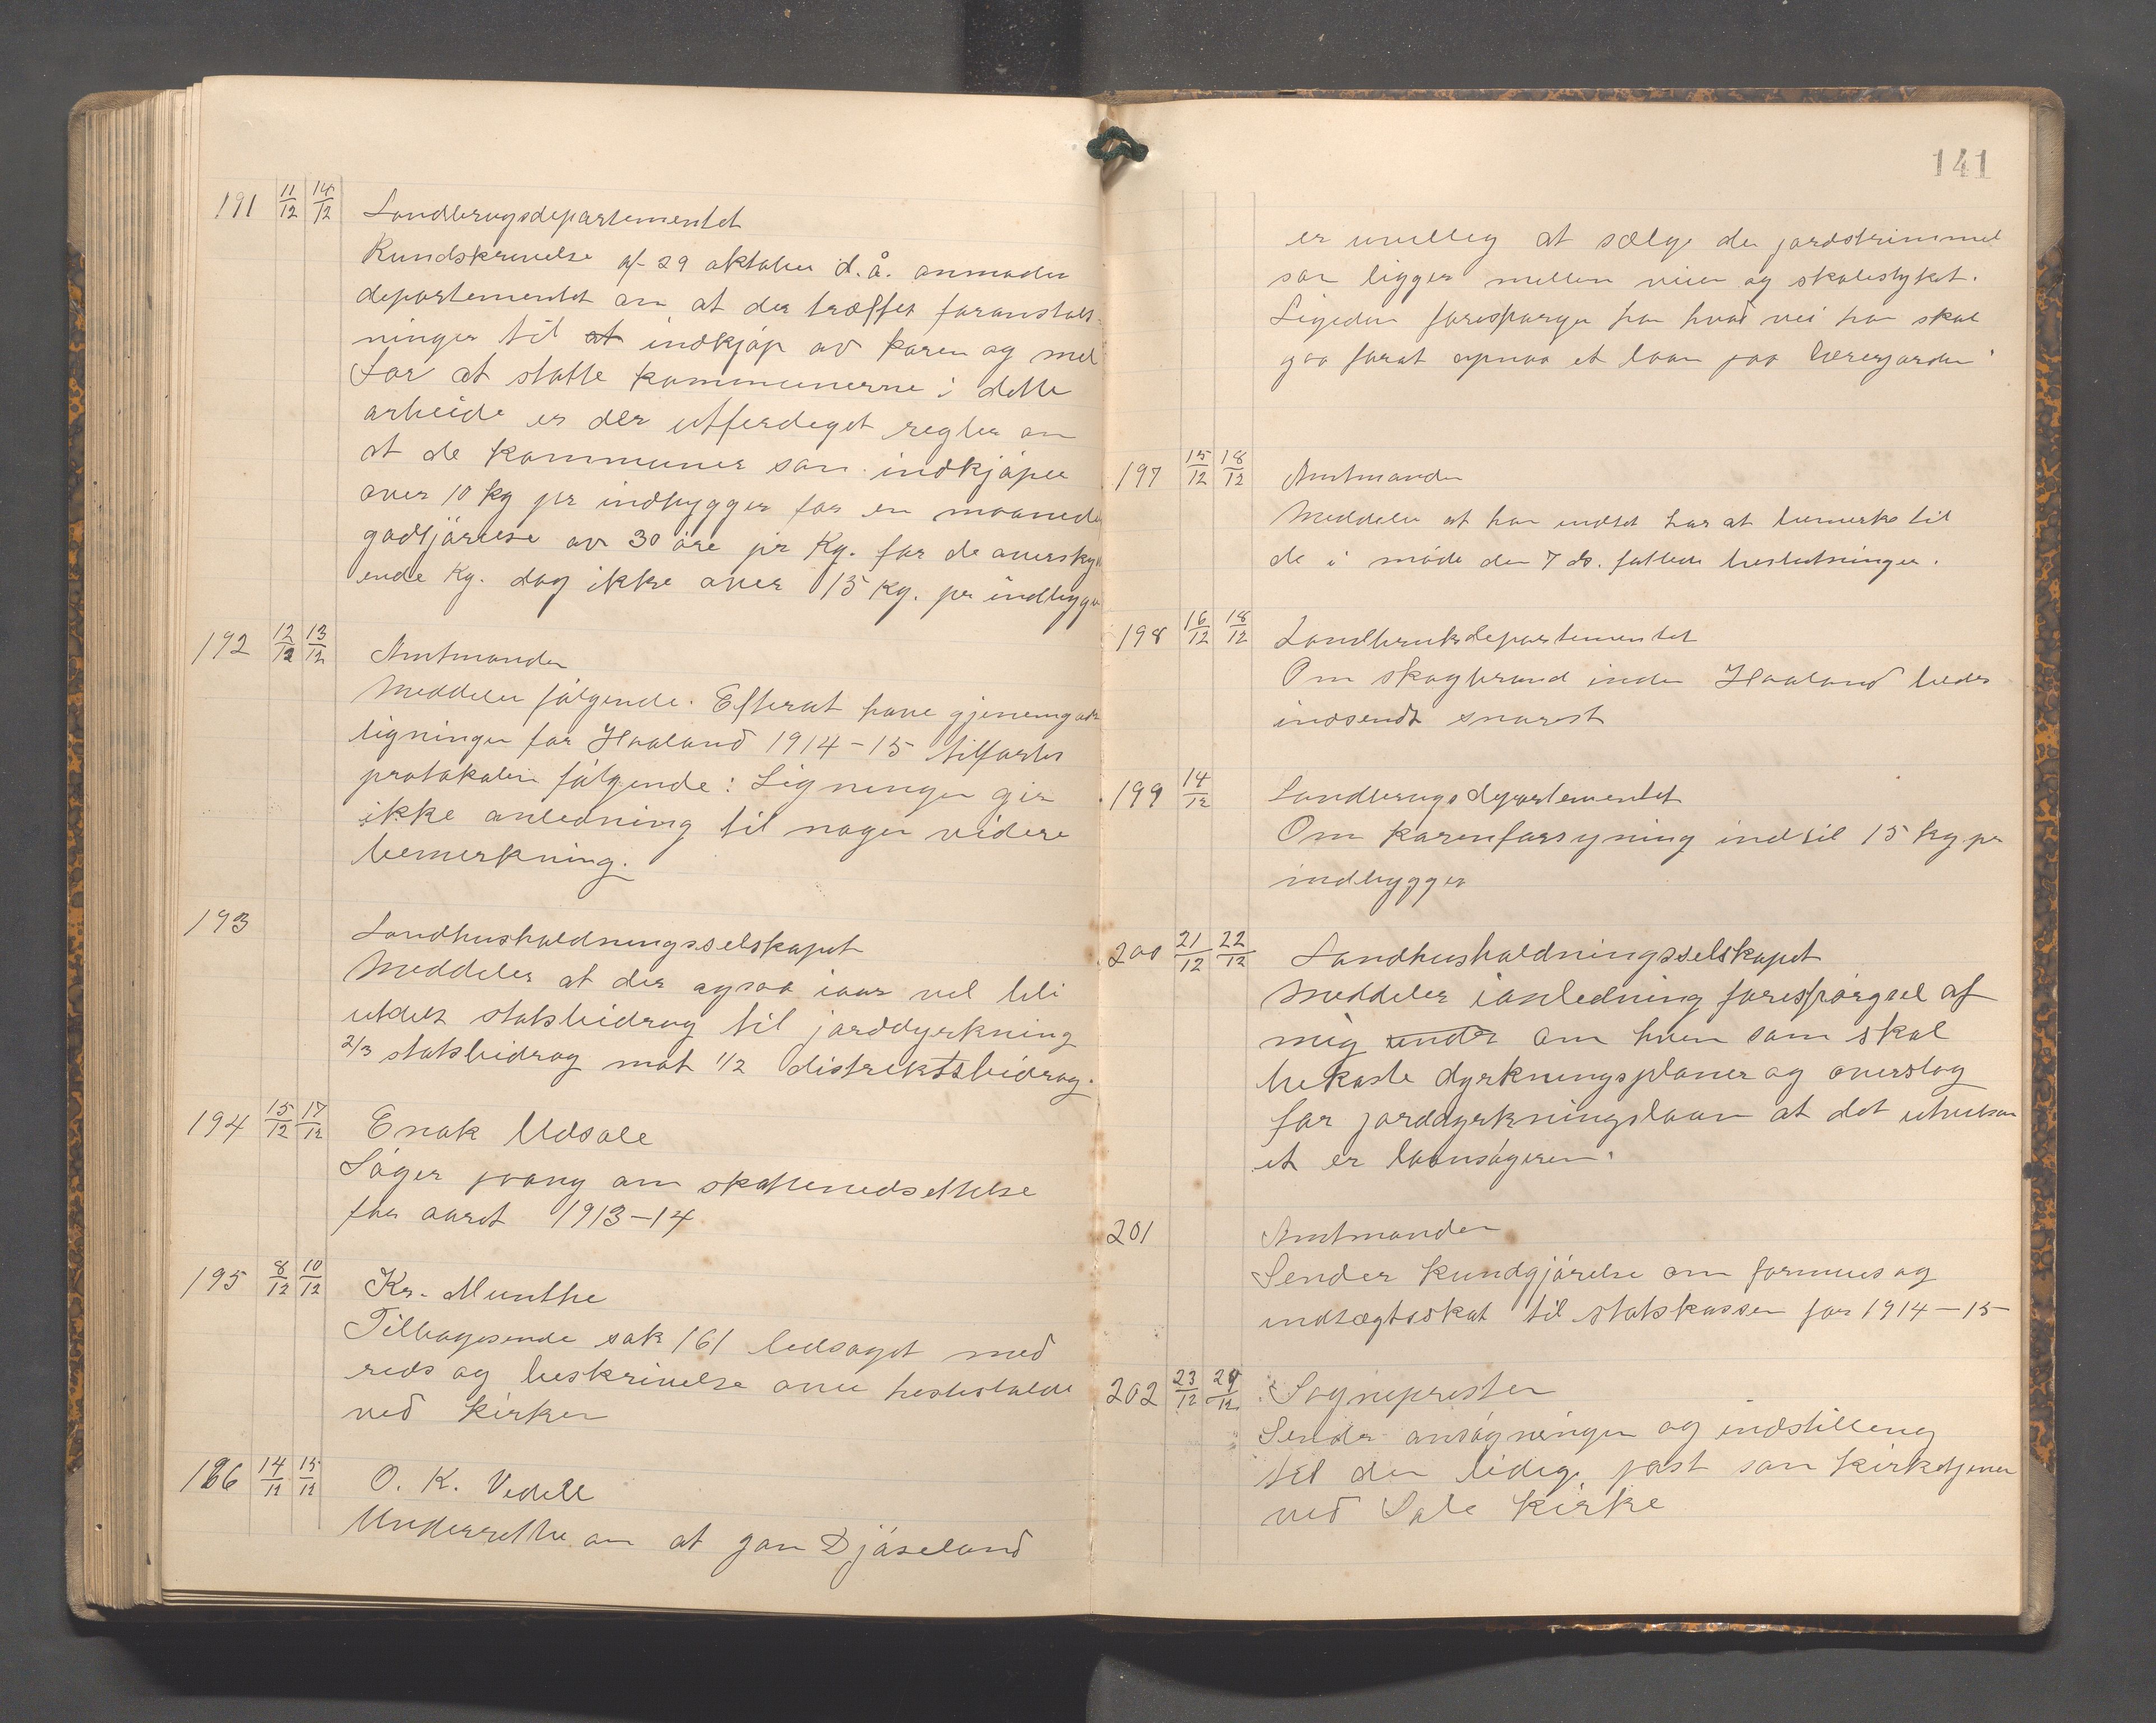 191 11/12 14/12 Landbrugsdepartementet
Rundskrivelse af 29 oktober d.å. anmoder
departementet om at der træffes foranstalt-
ninger til at indkjøp av koren og mel
For at støtte kommunerne i dette
arbeide er der utferdeget regler om
at de kommuner som indkjøper
over 10 kg pr indbygger for en maaned
godtjørelse av 30 øre pr Kg. for de oversky
ende Kg. dog ikke over 15 Kg. pr indbygger
192 12/12 13/12 Amtmanden
Meddeler følgende. Efterat have gjenemgaat
ligningen for Haaland 1914-15 tilførtes
protokolen følgende: Ligningen gir
ikke anledning til nogen videre
bemerkning.
193 Landhusholdningsselskapet
Meddeler at der ogsaa iaar vel bli
utdelt statsbidrag til jorddyrkning
2/3 statsbidrag mot 1/2 distriktsbidrag.
194 15/12 17/12 Enok Udsole
Søger paany om skattenedsettelse
for aaret 1913-14
195 8/12 10/12 Kr. Munthe
Tilbagesende sak 161 ledsaget med
rids og beskrivelse over hestestalde
ved kirken
196 14/12 15/12 O. K. Vedele
Underretter om at Jan Djøseland
141
er uvellig at sælge den jordstrimmel
som ligger mellem veien og skolestyket.
Ligeden forespørger han hvad vei han skal
gaa forat opnaa et laan paa lærerjorden
197 15/12 18/12 Amtmanden
Meddeler at han indtet har at bemerke til
de i møde den 7 ds. fattede beslutninger.
198 16/12 18/12 Landbruksdepartementet
Om skogbrand inden Haaland bedes
indsendt snarest
199 14/12 Landbrugsdepartementet
Om korenforsyning indtil 15 kg pr
indbygger
200 21/12 22/12 Landhusholdningsselskapet
Meddeler ianledning forespørgsel af
mig under om hvem som skal
bekoste dyrkningsplaner og overslag
for jorddyrkningslaan at det
et er laansøgeren.
201 Amtmanden
Sender kundgjørelse om formues og
indtægtsskat til statskassen for 1914-15
202 23/12 29/12 Sognepresten
Sender ansøgninger og indstilleng
til den ledige post som kirketjener
ved Sole kirke